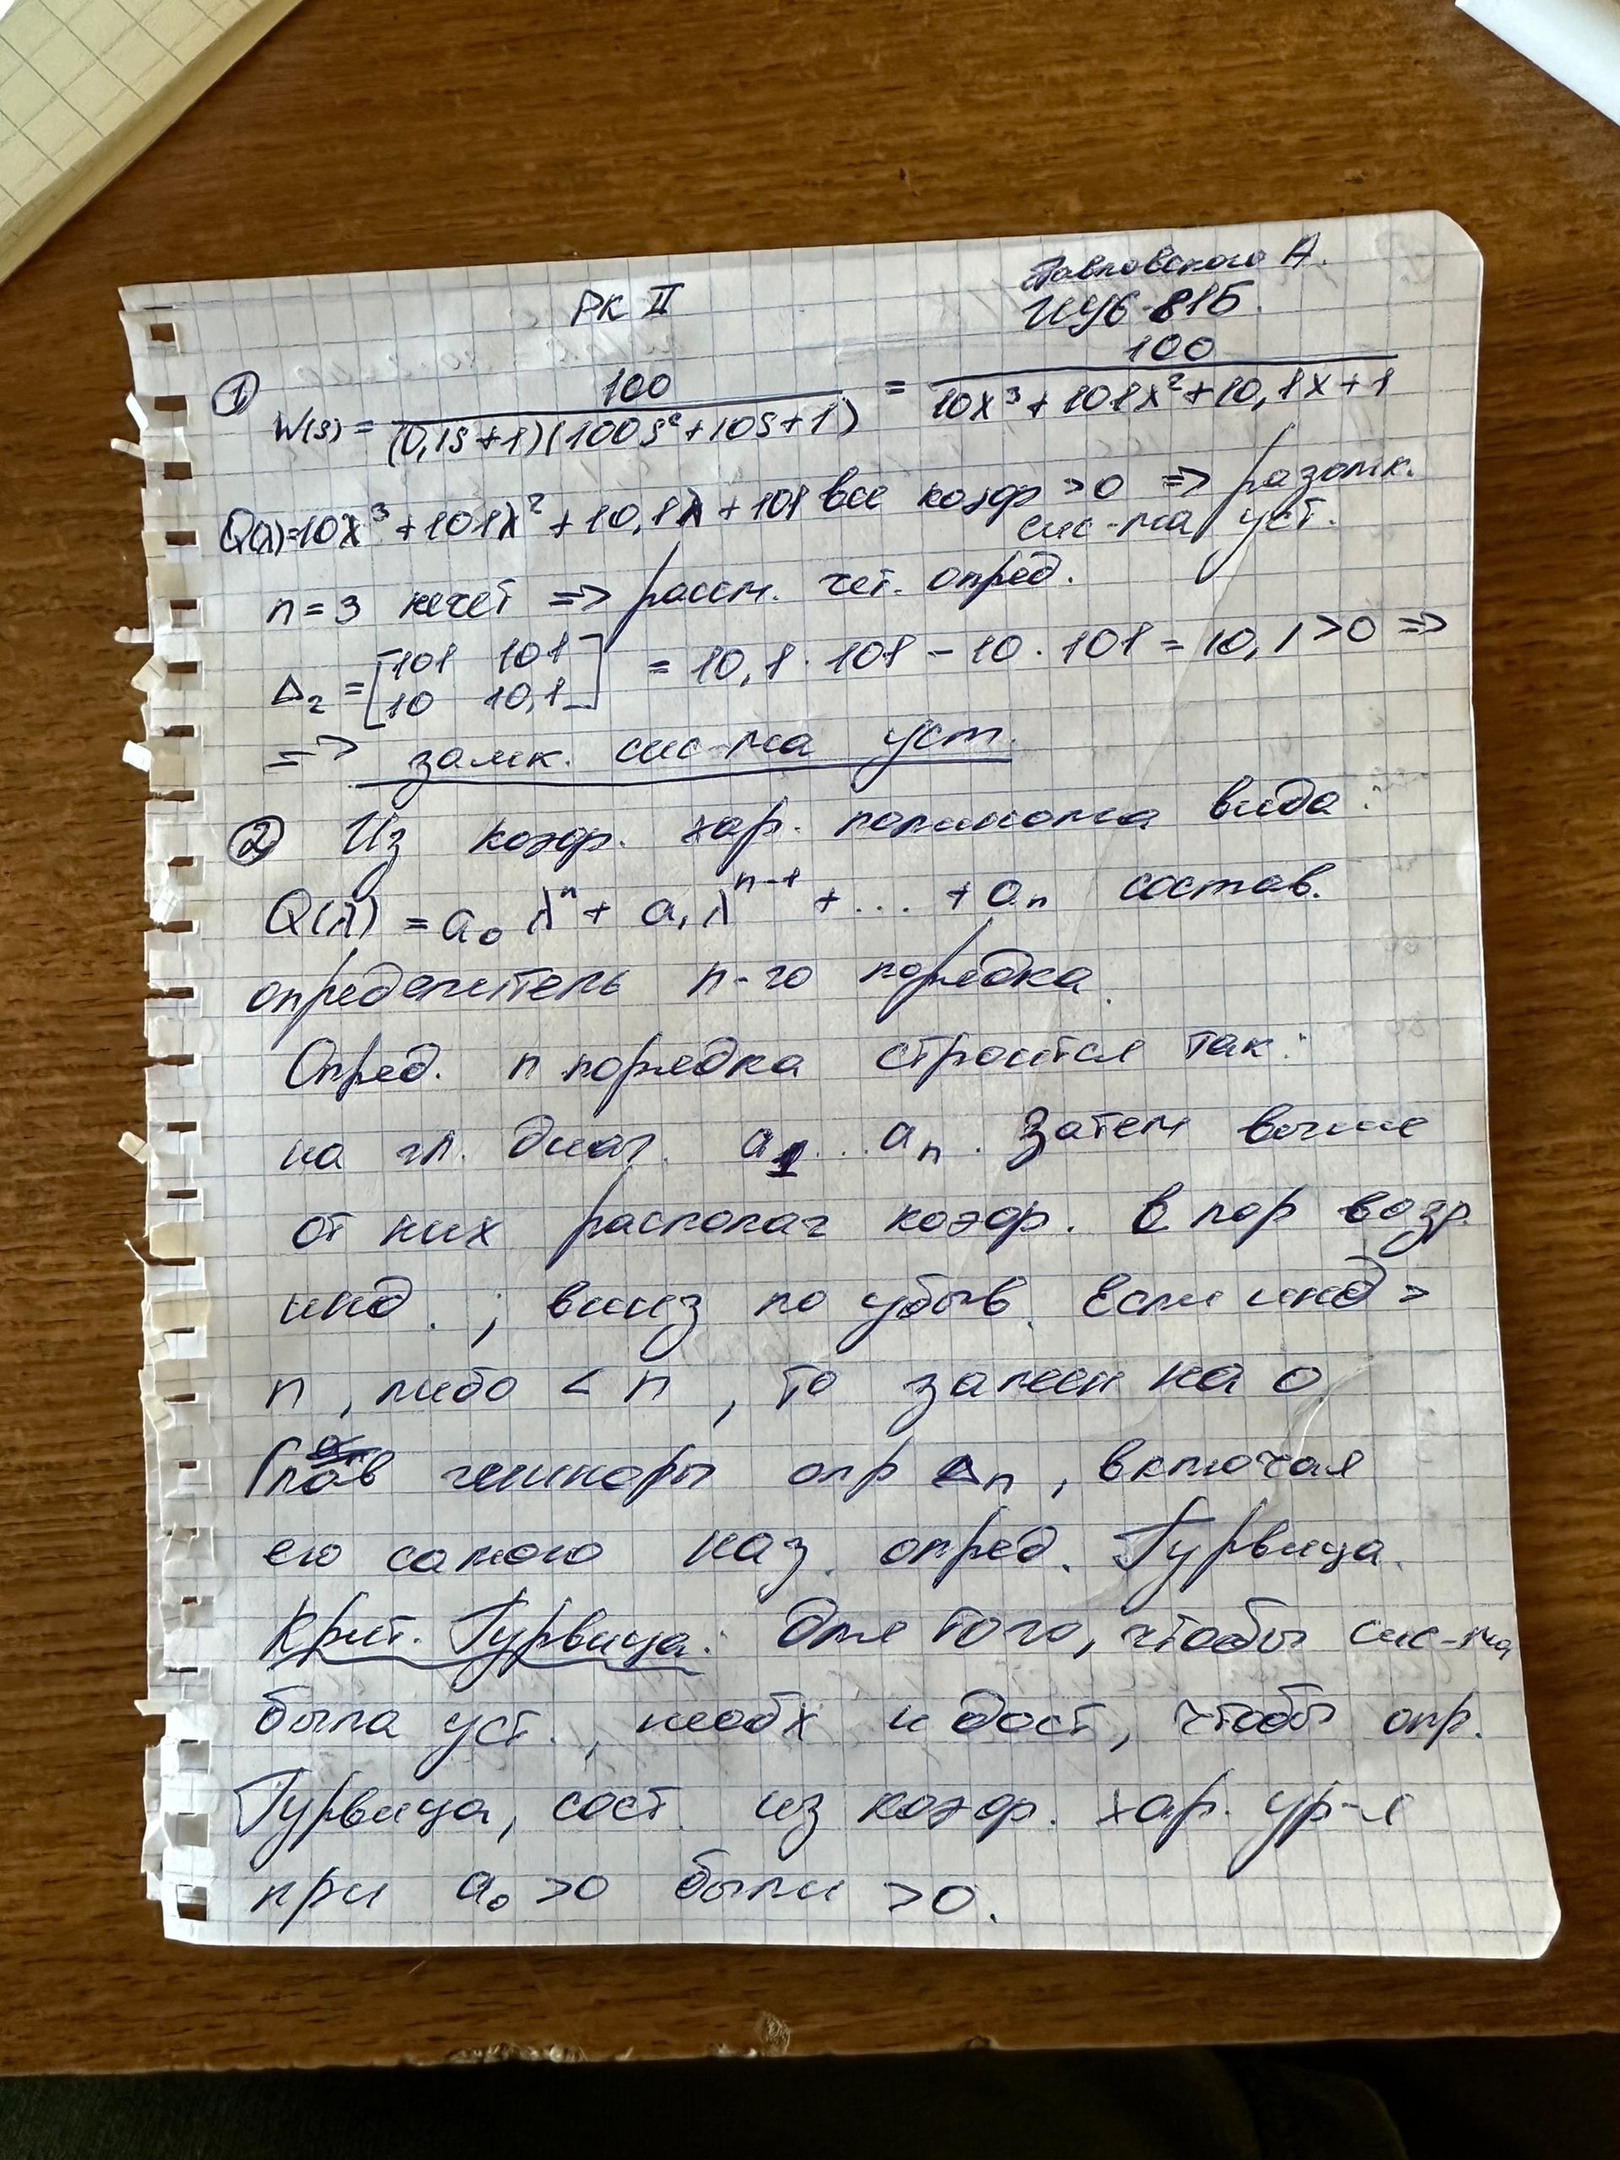 РК II
Павловского А.
ИУ6-81Б.
① W(s) = 100 / (0,1s+1)(100s²+10s+1) = 100 / 10λ³+101λ²+10,1λ+1
Q(λ)=10λ³+101λ²+10,1λ+101 все коэф >0 => разомк.
сис-ма уст.
n=3 нечет => рассм. чет. опред.
Δ₂ = [101 101; 10 10,1] = 10,1·101 - 10·101 = 10,1>0 =>
=> замк. сис-ма уст.
② Из коэф. хар. полинома вида:
Q(λ) = a₀ λⁿ + a₁ λⁿ⁻¹ + ... + aₙ состав.
определитель n-го порядка.
Опред. n порядка строится так:
на гл. диаг. a₁...aₙ. Затем выше
от них располаг коэф. в пор возр
инд.; вниз по убыв. Если инд >
n, либо < n, то замен на 0
Глав миноры опр Δₙ, включая
его самого наз. опред. Гурвица.
Крит. Гурвица: Для того, чтобы сис-ма
была уст., необх и дост, чтобы опр.
Гурвица, сост. из коэф. хар. ур-я
при a₀ >0 были >0.